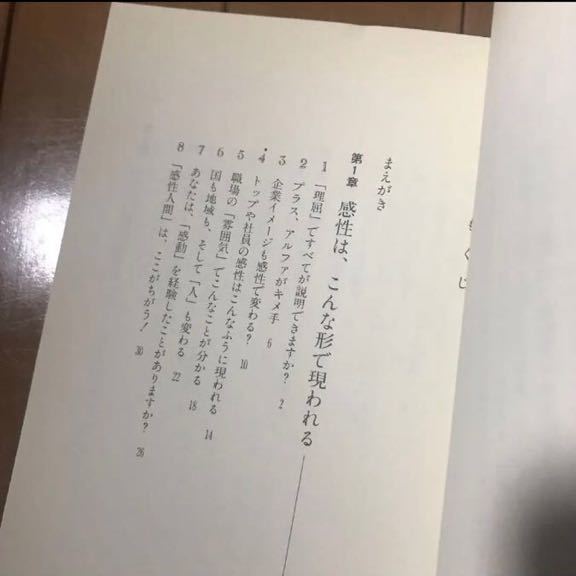 もくじ
まえがき
第1章 感性は、こんな形で現われる
1 「理屈」ですべてが説明できますか？ 2
2 プラス、アルファがキメ手 6
3 企業イメージも感性で変わる？ 10
4 トップや社員の感性はこんなふうに現われる 14
5 職場の「雰囲気」でこんなことが分かる 18
6 国も地域も、そして「人」も変わる 22
7 あなたは、「感動」を経験したことがありますか？ 26
8 「感性人間」は、ここがちがう！ 30